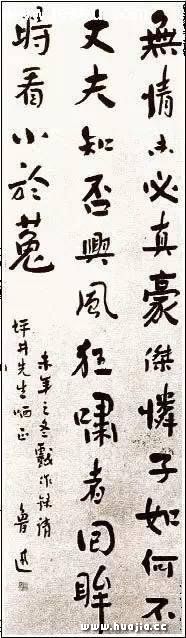 無情未必真豪傑憐子如何不
丈夫知否興風狂嘯者回眸
時看小於菟
未年之冬戲作錄請
坪井先生哂正
魯迅
www.huajia.cc